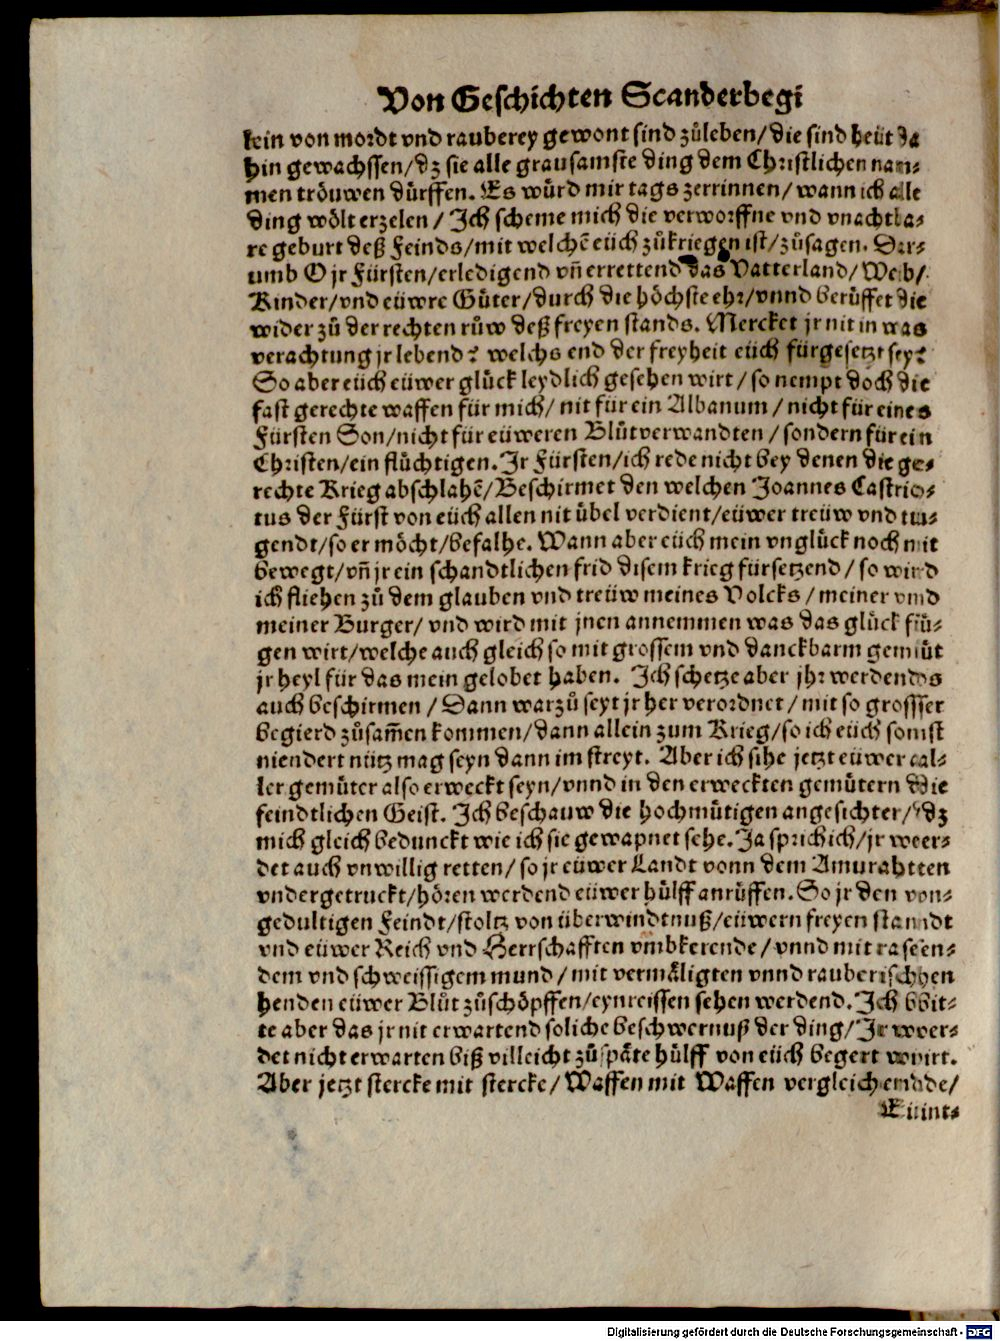 Von Geschichten Scanderbegi
kein von mordt vnd rauberey gewont sind zůleben/die sind heüt da
hin gewachssen/dz sie alle grausamste ding dem Christlichen nam-
men tröuwen dürffen. Es würd mir tags zerrinnen/wann ich alle
ding wölt erzelen/Ich scheme mich die verworffne vnd vnachtba-
re geburt deß Feinds/mit welchē eüch zůkriegen ist/zůsagen. Dar-
umb O jr Fürsten/erledigend vñ errettend das Vatterland/Weib/
Kinder/vnd eüwre Güter/durch die höchste ehr/vnnd berüffet die
wider zů der rechten růw deß freyen stands. Mercket jr nit in was
verachtung jr lebend? welchs end der freyheit eüch fürgesetzt sey?
So aber eüch eüwer glück leydlich gesehen wirt/so nempt doch die
fast gerechte waffen für mich/nit für ein Albanum/nicht für eines
Fürsten Son/nicht für eüweren Blůtverwandten/sondern für ein
Christen/ein flüchtigen. Ir Fürsten/ich rede nicht bey denen die ge-
rechte Krieg abschlahē/Beschirmet den welchen Joannes Castrio-
tus der Fürst von eüch allen nit übel verdient/eüwer treüw vnd tu-
gendt/so er möcht/befalhe. Wann aber eüch mein vnglück noch nit
bewegt/vñ jr ein schandtlichen frid disem krieg fürsetzend/so wird
ich fliehen zů dem glauben vnd treüw meines Volcks/meiner vnd
meiner Burger/vnd wird mit jnen annemmen was das glück fü-
gen wirt/welche auch gleich so mit grossem vnd danckbarm gemüt
jr heyl für das mein gelobet haben. Ich schetze aber jhr werdend es
auch beschirmen/Dann warzů seyt jr her verordnet/mit so grosser
begierd zůsam̄en kommen/dann allein zum Krieg/so ich eüch sonst
niendert nütz mag seyn dann im streyt. Aber ich sihe jetzt eüwer al-
ler gemüter also erweckt seyn/vnnd in den erweckten gemütern die
feindtlichen Geist. Ich beschauw die hochmütigen angesichter/dz
mich gleich bedunckt wie ich sie gewapnet sehe. Ja sprich ich/jr wer-
det auch vnwillig retten/so jr eüwer Landt vonn dem Amurahtten
vndergetruckt/hören werdend eüwer hülff anrüffen. So jr den von-
gedultigen Feindt/stoltz von überwindtnuß/eüwern freyen standt
vnd eüwer Reich vnd Herrschafften vmbkerende/vnnd mit rasen-
dem vnd schweissigem mund/mit vermäligten vnnd rauberischen
henden eüwer Blůt zůschöpffen/eynreissen sehen werdend. Ich bit-
te aber das jr nit erwartend soliche beschwernuß der ding/Ir wer-
det nicht erwarten biß villeicht zů späte hülff von eüch begert wirt.
Aber jetzt stercke mit stercke/Waffen mit Waffen vergleichende/
Eint-
Digitalisierung gefördert durch die Deutsche Forschungsgemeinschaft - DFG